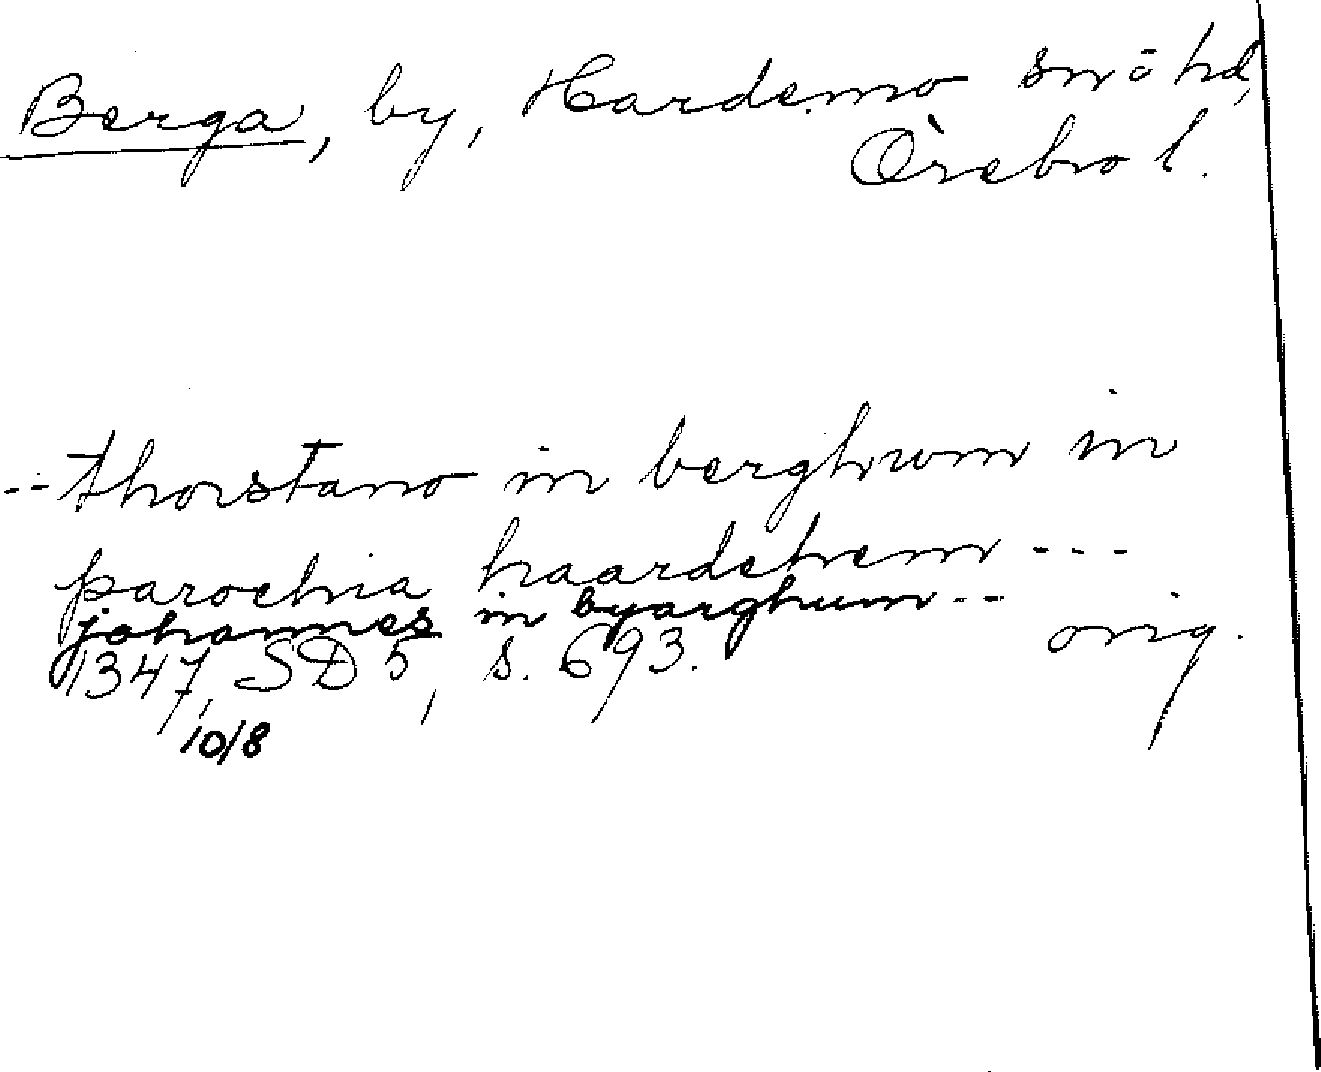 Berga, by, Hardemo sn o hd,
Örebro l.
-- thorstano in berghum in
parochia haardehem ---
johannes in byarghum --
1347, SD 5, s. 693. orig.
10/8